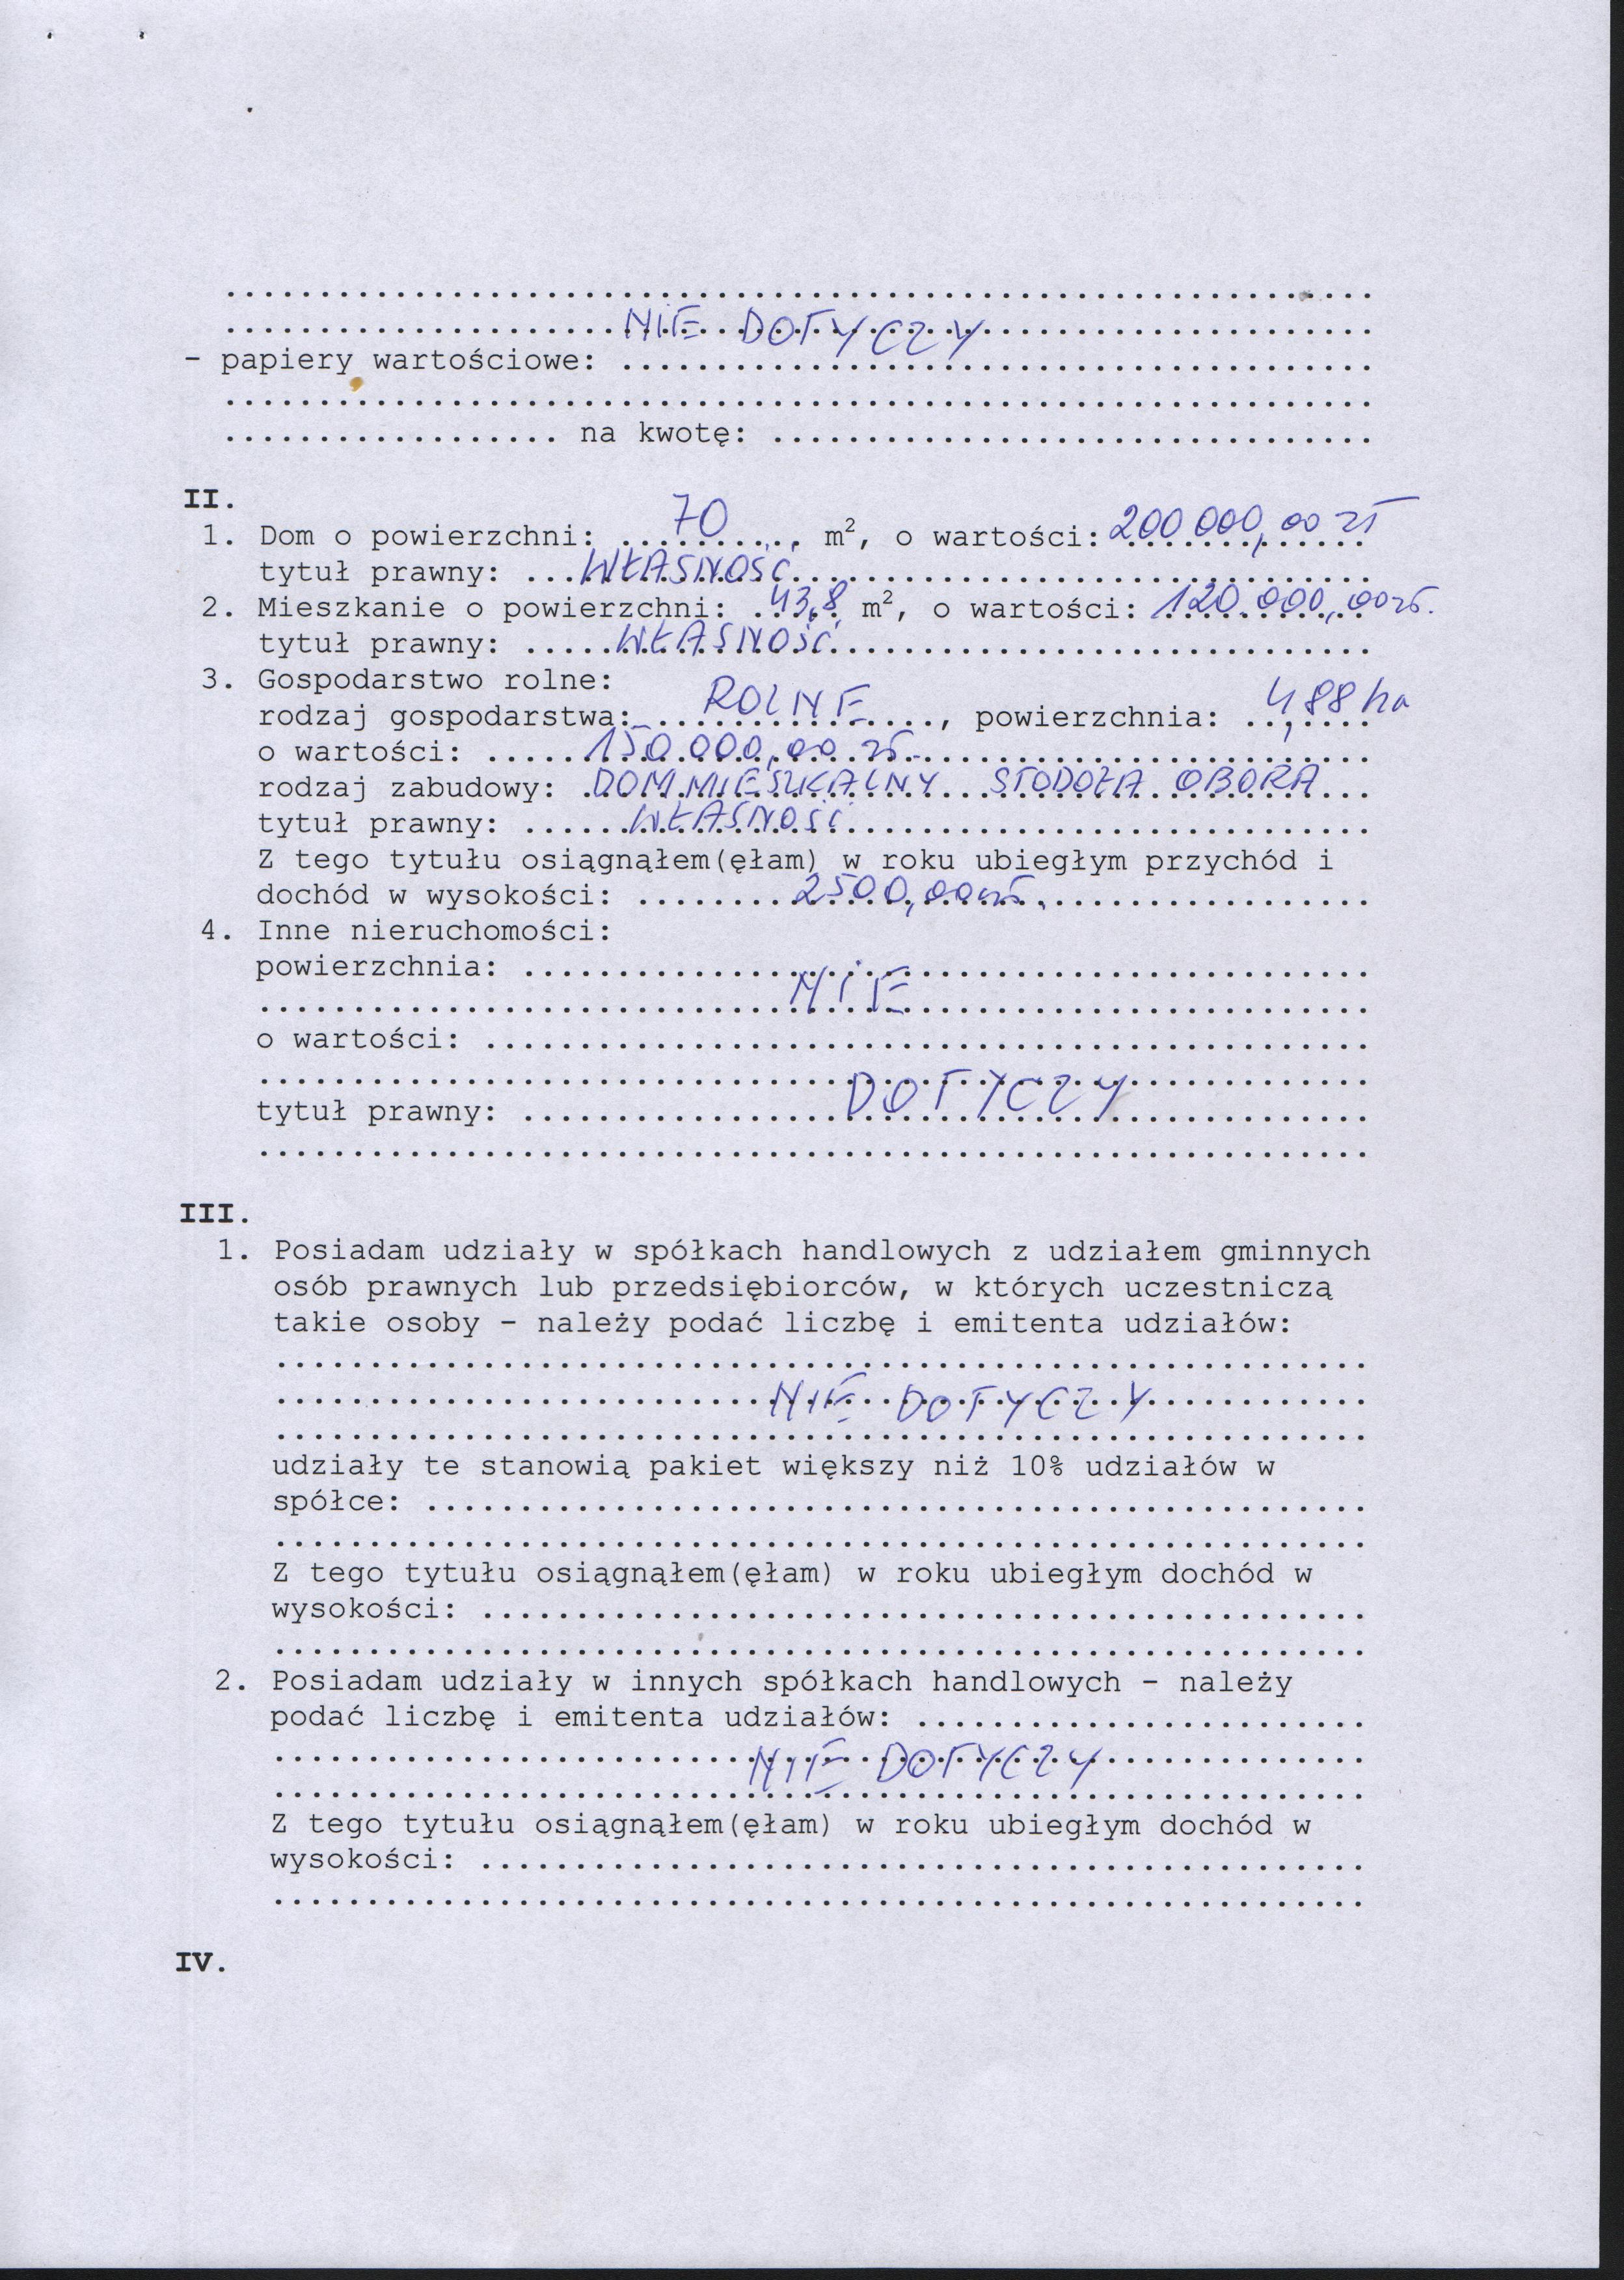 ................................................................
.....................NIE DOTYCZY.....................
- papiery wartościowe: ........................................
................................................................
.................. na kwotę: ................................
II.
1. Dom o powierzchni: 70 m², o wartości: 200 000,00 zł
tytuł prawny: ...WŁASNOŚĆ...............................
2. Mieszkanie o powierzchni: 43,8 m², o wartości: 120.000,00 zł.
tytuł prawny: .....WŁASNOŚĆ.............................
3. Gospodarstwo rolne:
rodzaj gospodarstwa: ROLNE, powierzchnia: 4,88 ha
o wartości: .....150.000,00 zł..............................
rodzaj zabudowy: DOM MIESZKALNY STODOŁA OBORA...
tytuł prawny: ......WŁASNOŚĆ............................
Z tego tytułu osiągnąłem(ęłam) w roku ubiegłym przychód i
dochód w wysokości: .........2500,00 zł..................
4. Inne nieruchomości:
powierzchnia: .............................................
..............................NIE.........................
o wartości: ...............................................
............................................................
tytuł prawny: .................DOTYCZY.............
............................................................
III.
1. Posiadam udziały w spółkach handlowych z udziałem gminnych
osób prawnych lub przedsiębiorców, w których uczestniczą
takie osoby - należy podać liczbę i emitenta udziałów:
...........................................................
..........................NIE DOTYCZY............
...........................................................
udziały te stanowią pakiet większy niż 10% udziałów w
spółce: ..................................................
...........................................................
Z tego tytułu osiągnąłem(ęłam) w roku ubiegłym dochód w
wysokości: ...............................................
...........................................................
2. Posiadam udziały w innych spółkach handlowych - należy
podać liczbę i emitenta udziałów: ........................
..........................NIE DOTYCZY..............
...........................................................
Z tego tytułu osiągnąłem(ęłam) w roku ubiegłym dochód w
wysokości: ...............................................
...........................................................
IV.